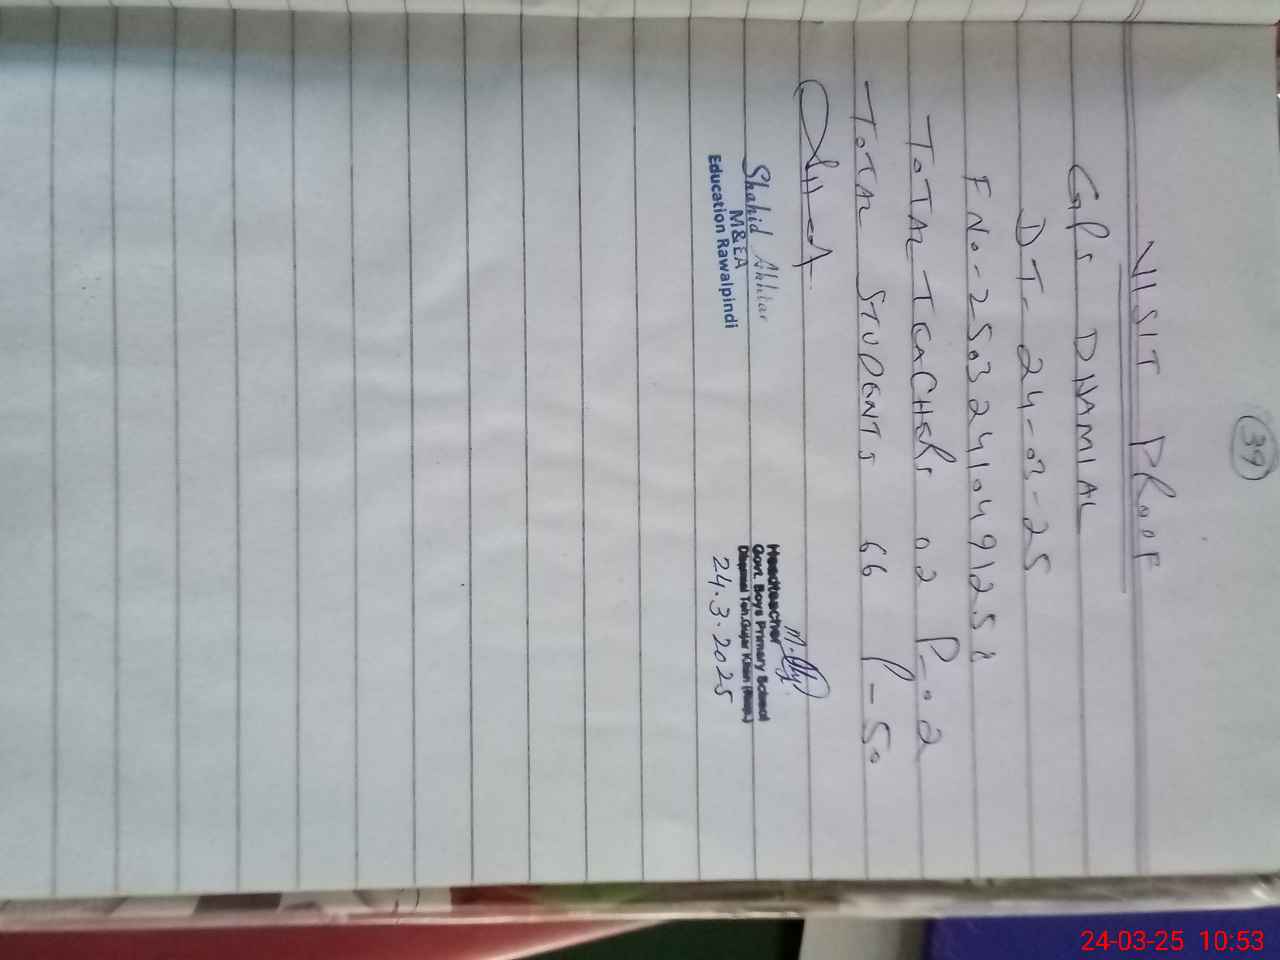 39
VISIT PROOF
GPS DHAMIAL
DT- 24-03-25
F No- 25032410491258
TOTAL TEACHERS 02 P-02
TOTAL STUDENTS 66 P-50
Shahid Akhtar
M&EA
Education Rawalpindi
Headteacher
Govt. Boys Primary School
Dhamial Teh. Gujar Khan (Rwp.)
24.3.2025
24-03-25 10:53